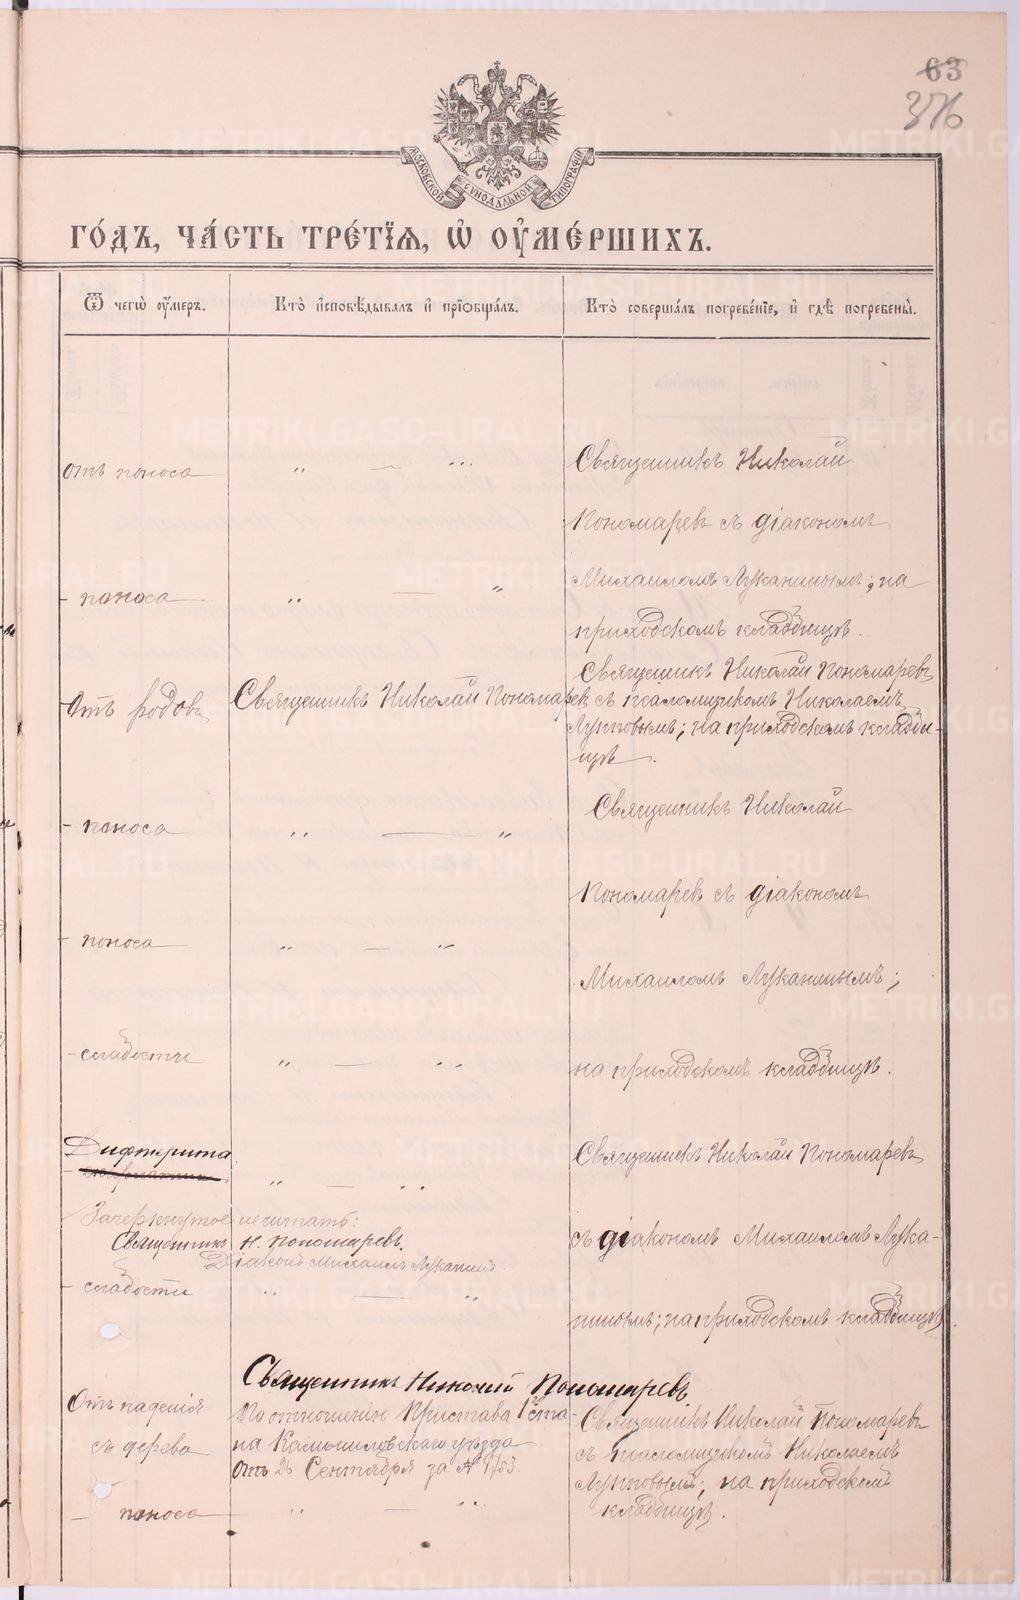 63
376
МОСКОВСКОЙ СѴНОДАЛЬНОЙ ТИПОГРАФІИ
ГО́ДЪ, ЧА́СТЬ ТРЕ́ТІѦ, Ѡ҆ ОУ҆МЕ́РШИХЪ.
Ѿ чегѡ̀ оу҆́меръ.
Кто̀ и҆сповѣ́дывалъ и҆ прїѡбща́лъ.
Кто̀ соверша́лъ погребе́нїе, и҆ гдѣ̀ погребены̀.
отъ поноса
„ — „
Священникъ Николай
Пономаревъ съ діакономъ
- поноса
„ — „
Михаиломъ Луканинымъ; на
приходскомъ кладбищѣ.
Отъ родовъ
Священникъ Николай Пономаревъ
Священникъ Николай Пономаревъ
съ псаломщикомъ Николаемъ
Лупповымъ; на приходскомъ кладби-
щѣ.
- поноса
„ — „
Священникъ Николай
Пономаревъ съ діакономъ
- поноса
„ — „
Михаиломъ Луканинымъ;
- слабости
„ — „
на приходскомъ кладбищѣ.
Дифтерита
„ — „
Священникъ Николай Пономаревъ
Зачеркнутое не читать:
Священникъ Н. Пономаревъ.
Діаконъ Михаилъ Луканинъ
съ діакономъ Михаиломъ Лука-
- слабости
„ — „
нинымъ; на приходскомъ кладбищѣ.
Отъ паденія
съ дерева
Священникъ Николай Пономаревъ
По отношенію Пристава 1го ста-
на Камышловскаго уѣзда
отъ 2 Сентября за № 1753.
Священникъ Николай Пономаревъ
съ псаломщикомъ Николаемъ
Лупповымъ; на приходскомъ
кладбищѣ.
- поноса
„ — „
METRIKI.GASO-URAL.RU